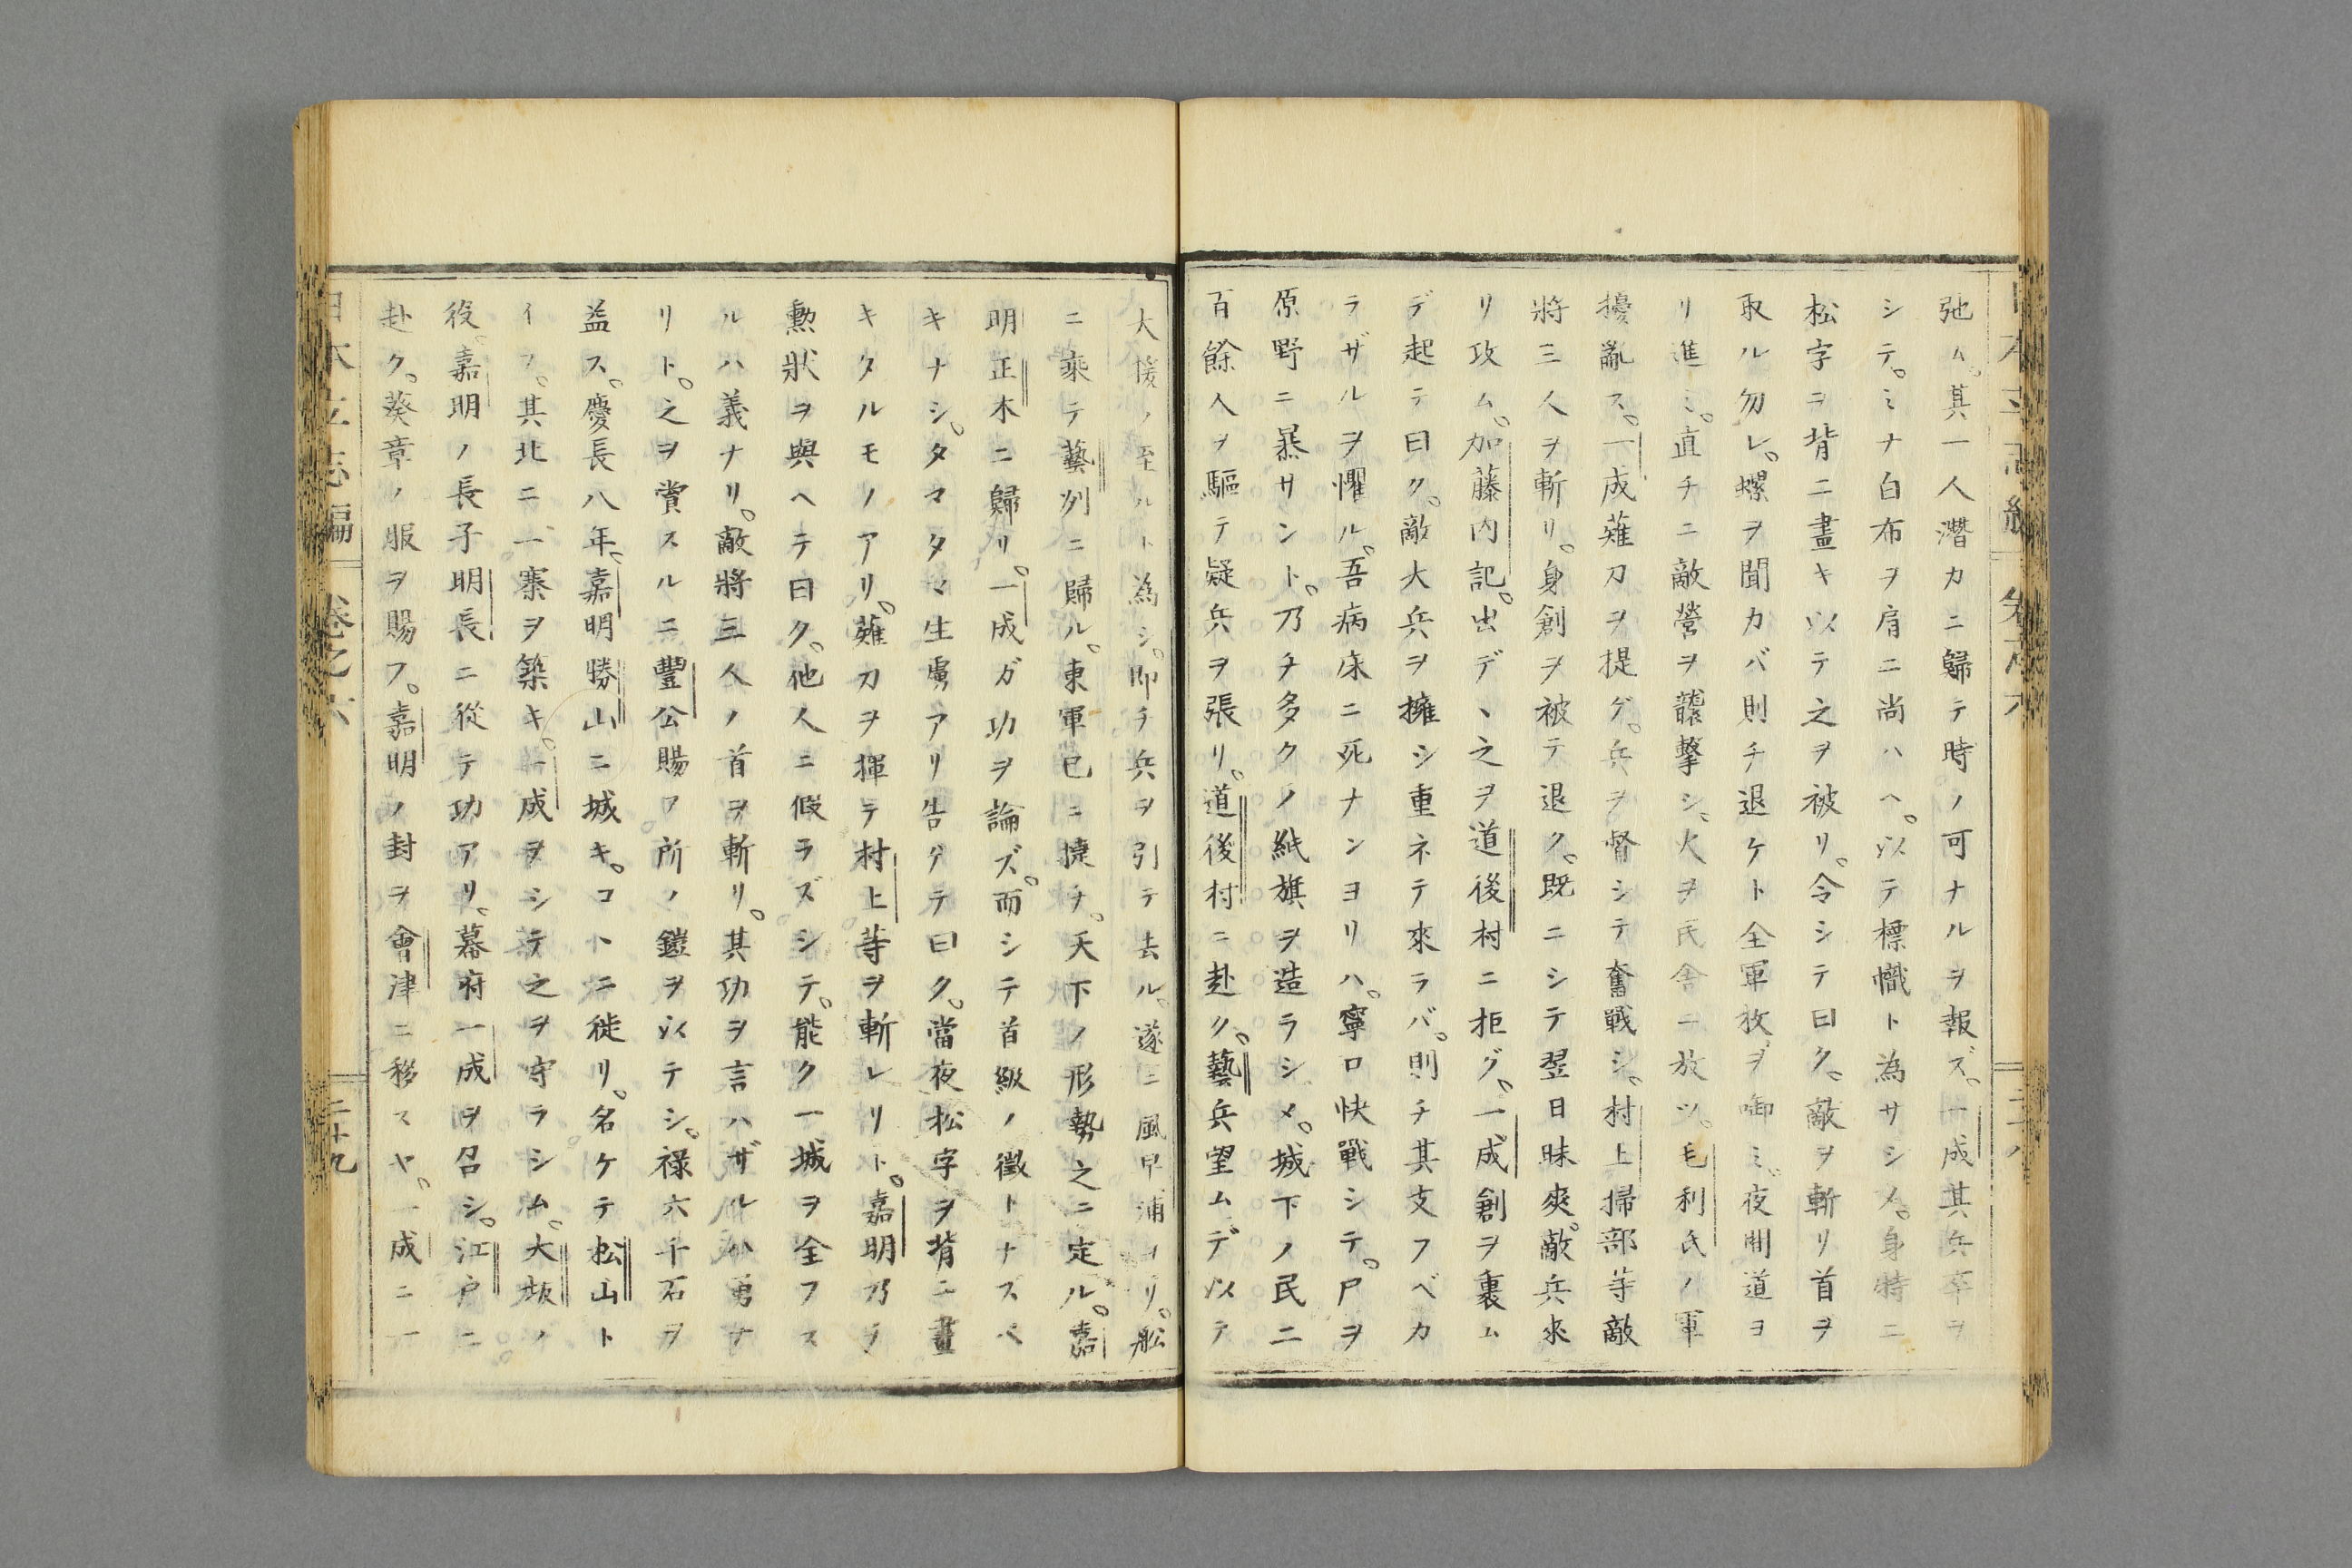 弛ム。其一人潛カニ歸テ時ノ可ナルヲ報ズ。一成其兵卒ヲ
シテ。ミナ白布ヲ肩ニ尚ハヘ。以テ標幟ト為サシメ。身特ニ
松字ヲ背ニ畫キ以テ之ヲ被リ。令シテ曰ク。敵ヲ斬リ首ヲ
取ル勿レ。螺ヲ聞カバ則チ退ケト全軍枚ヲ啣ミ。夜間道ヨ
リ進ミ。直チニ敵營ヲ襲擊シ。火ヲ民舍ニ放ツ。毛利氏ノ軍
擾亂ス。一成薙刀ヲ提グ。兵ヲ督シテ奮戰シ。村上掃部等敵
將三人ヲ斬リ。身創ヲ被テ退ク。既ニシテ翌日昧爽。敵兵來
リ攻ム。加藤内記。出デヽ之ヲ道後村ニ拒グ。一成創ヲ裹ム
デ起テ曰ク。敵大兵ヲ擁シ重ネテ來ラバ。則チ其支フベカ
ラザルヲ懼ル。吾病床ニ死ナンヨリハ。寧ロ快戰シテ。尸ヲ
原野ニ暴サント。乃チ多クノ紙旗ヲ造ラシメ。城下ノ民二
百餘人ヲ驅テ疑兵ヲ張リ。道後村ニ赴ク。藝兵望ムデ以テ
大援ノ至ルト為シ。即チ兵ヲ引テ去ル。遂ニ風早浦ヨリ。舩
ニ乘テ藝州ニ歸ル。東軍已ニ捷チ。天下ノ形勢之ニ定ル。嘉
明正木ニ歸リ。一成ガ功ヲ論ズ。而シテ首級ノ徵トナスベ
キナシ。タマタマ生虜アリ告ゲテ曰ク。當夜松字ヲ背ニ畫
キタルモノアリ。薙刀ヲ揮テ村上等ヲ斬レリト。嘉明乃チ
勲狀ヲ與ヘテ曰ク。他人ニ假ラズシテ。能ク一城ヲ全フス
ルハ義ナリ。敵將三人ノ首ヲ斬リ。其功ヲ言ハザルハ勇ナ
リト。之ヲ賞スルニ豐公賜フ所ノ鎧ヲ以テシ。祿六千石ヲ
益ス。慶長八年。嘉明勝山ニ城キ。コヽニ徙リ。名ケテ松山ト
イフ。其北ニ一寨ヲ築キ。一成ヲシテ之ヲ守ラシム。大坂ノ
役。嘉明ノ長子明長ニ從テ功アリ。幕府一成ヲ召シ。江戸ニ
赴ク。葵章ノ服ヲ賜フ。嘉明ノ封ヲ會津ニ移スヤ。一成ニ一
日本立志編 卷之六 二十九